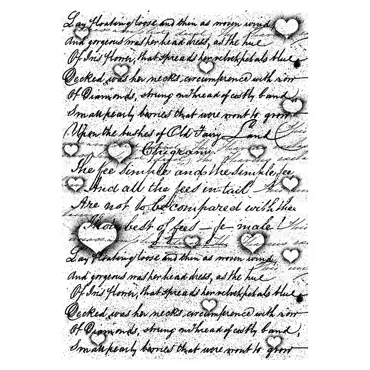 Lay floating loose and thin as woven wind,
And gorgeous was her head dress, as the hue
Of Iris flower, that spreads her rock petals blue
Decked, was her neck's circumference with row
Of Diamonds, strung on thread of costly band,
Small pearly berries that were wont to grow
Upon the bushes of Old Fairy Land
Epigram
The fee simple and the simple fee,
And all the fees in tail
Are not to be compared with thee
Thou best of fees — fe-male!
Lay floating loose and thin as woven wind,
And gorgeous was her head dress, as the hue
Of Iris flower, that spreads her rock petals blue
Decked, was her neck's circumference with row
Of Diamonds, strung on thread of costly band,
Small pearly berries that were wont to grow